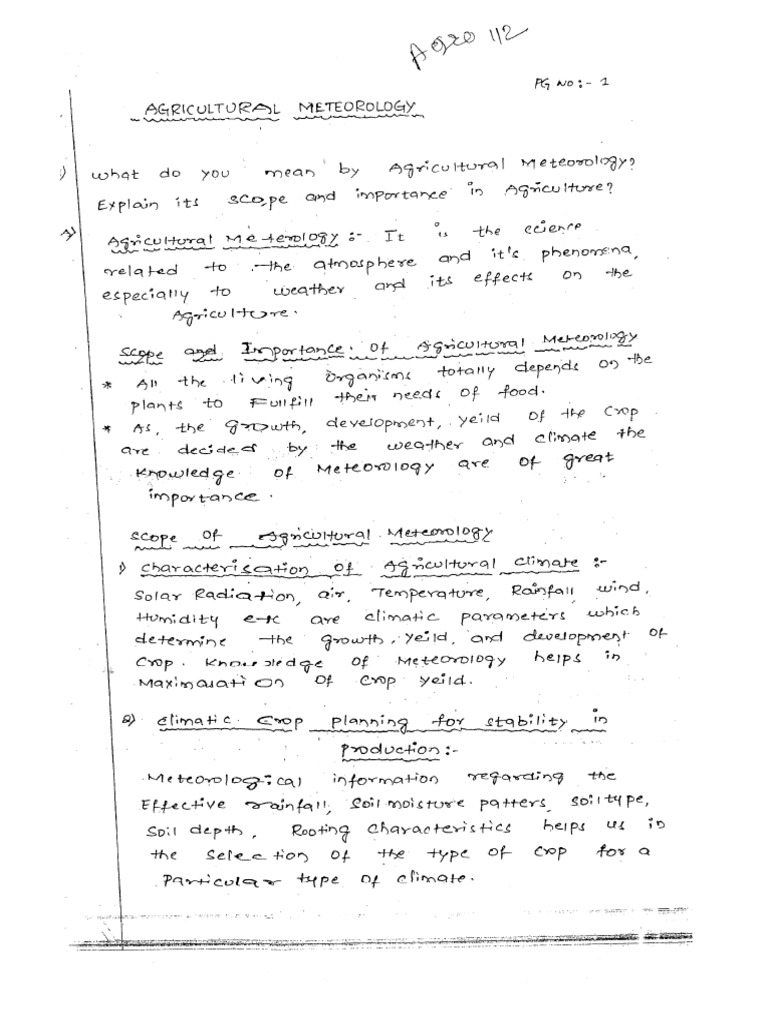 Agro 112
PG NO:- 1
AGRICULTURAL METEOROLOGY
1) what do you mean by Agricultural Meteorology?
Explain its scope and importance in Agriculture?
A) Agricultural Meterology :- It is the science
related to the atmosphere and it's phenomena,
especially to weather and its effects on the
Agriculture.
Scope and Importance of Agricultural Meteorology
* All the living organisms totally depends on the
plants to Fullfill their needs of food.
* As, the growth, development, yeild of the crop
are decided by the weather and climate the
Knowledge of Meteorology are of great
importance.
Scope of Agricultural Meteorology
1) Characterisation of Agricultural Climate :-
Solar Radiation, air, Temperature, Rainfall wind,
Humidity etc are climatic parameters which
determine the growth, yeild, and development of
Crop. Knowledge of Meteorology helps in
Maximasation of Crop yeild.
2) Climatic Crop planning for stability in
production :-
Meteorological information regarding the
Effective rainfall, Soil moisture patters, soil type,
Soil depth, Rooting characteristics helps us in
the selection of the type of crop for a
Particular type of climate.